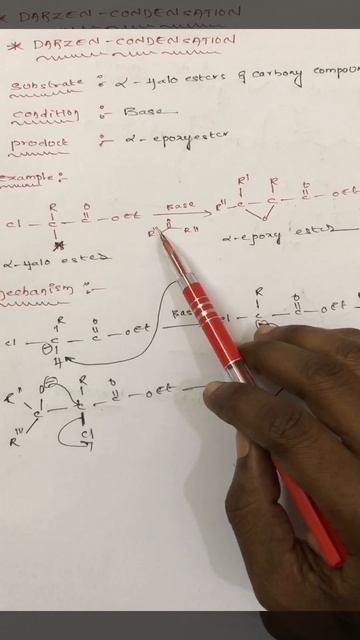 * DARZEN-CONDENSATION
* DARZEN-CONDENSATION
Substrate : α-Halo esters & carbony compoun
condition : Base
product : α-epoxyester
example :-
R O
Cl - C - C - OEt
Base
O
R'' R''
R' R O
R'' - C - C - C - OEt
O
α-Halo ester
α-epoxy ester
mechanism :-
R O
Cl - C - C - OEt
H
Bas
R O
Cl - C - C - OEt
R'' O R O
C - C - C - OEt
R''' Cl